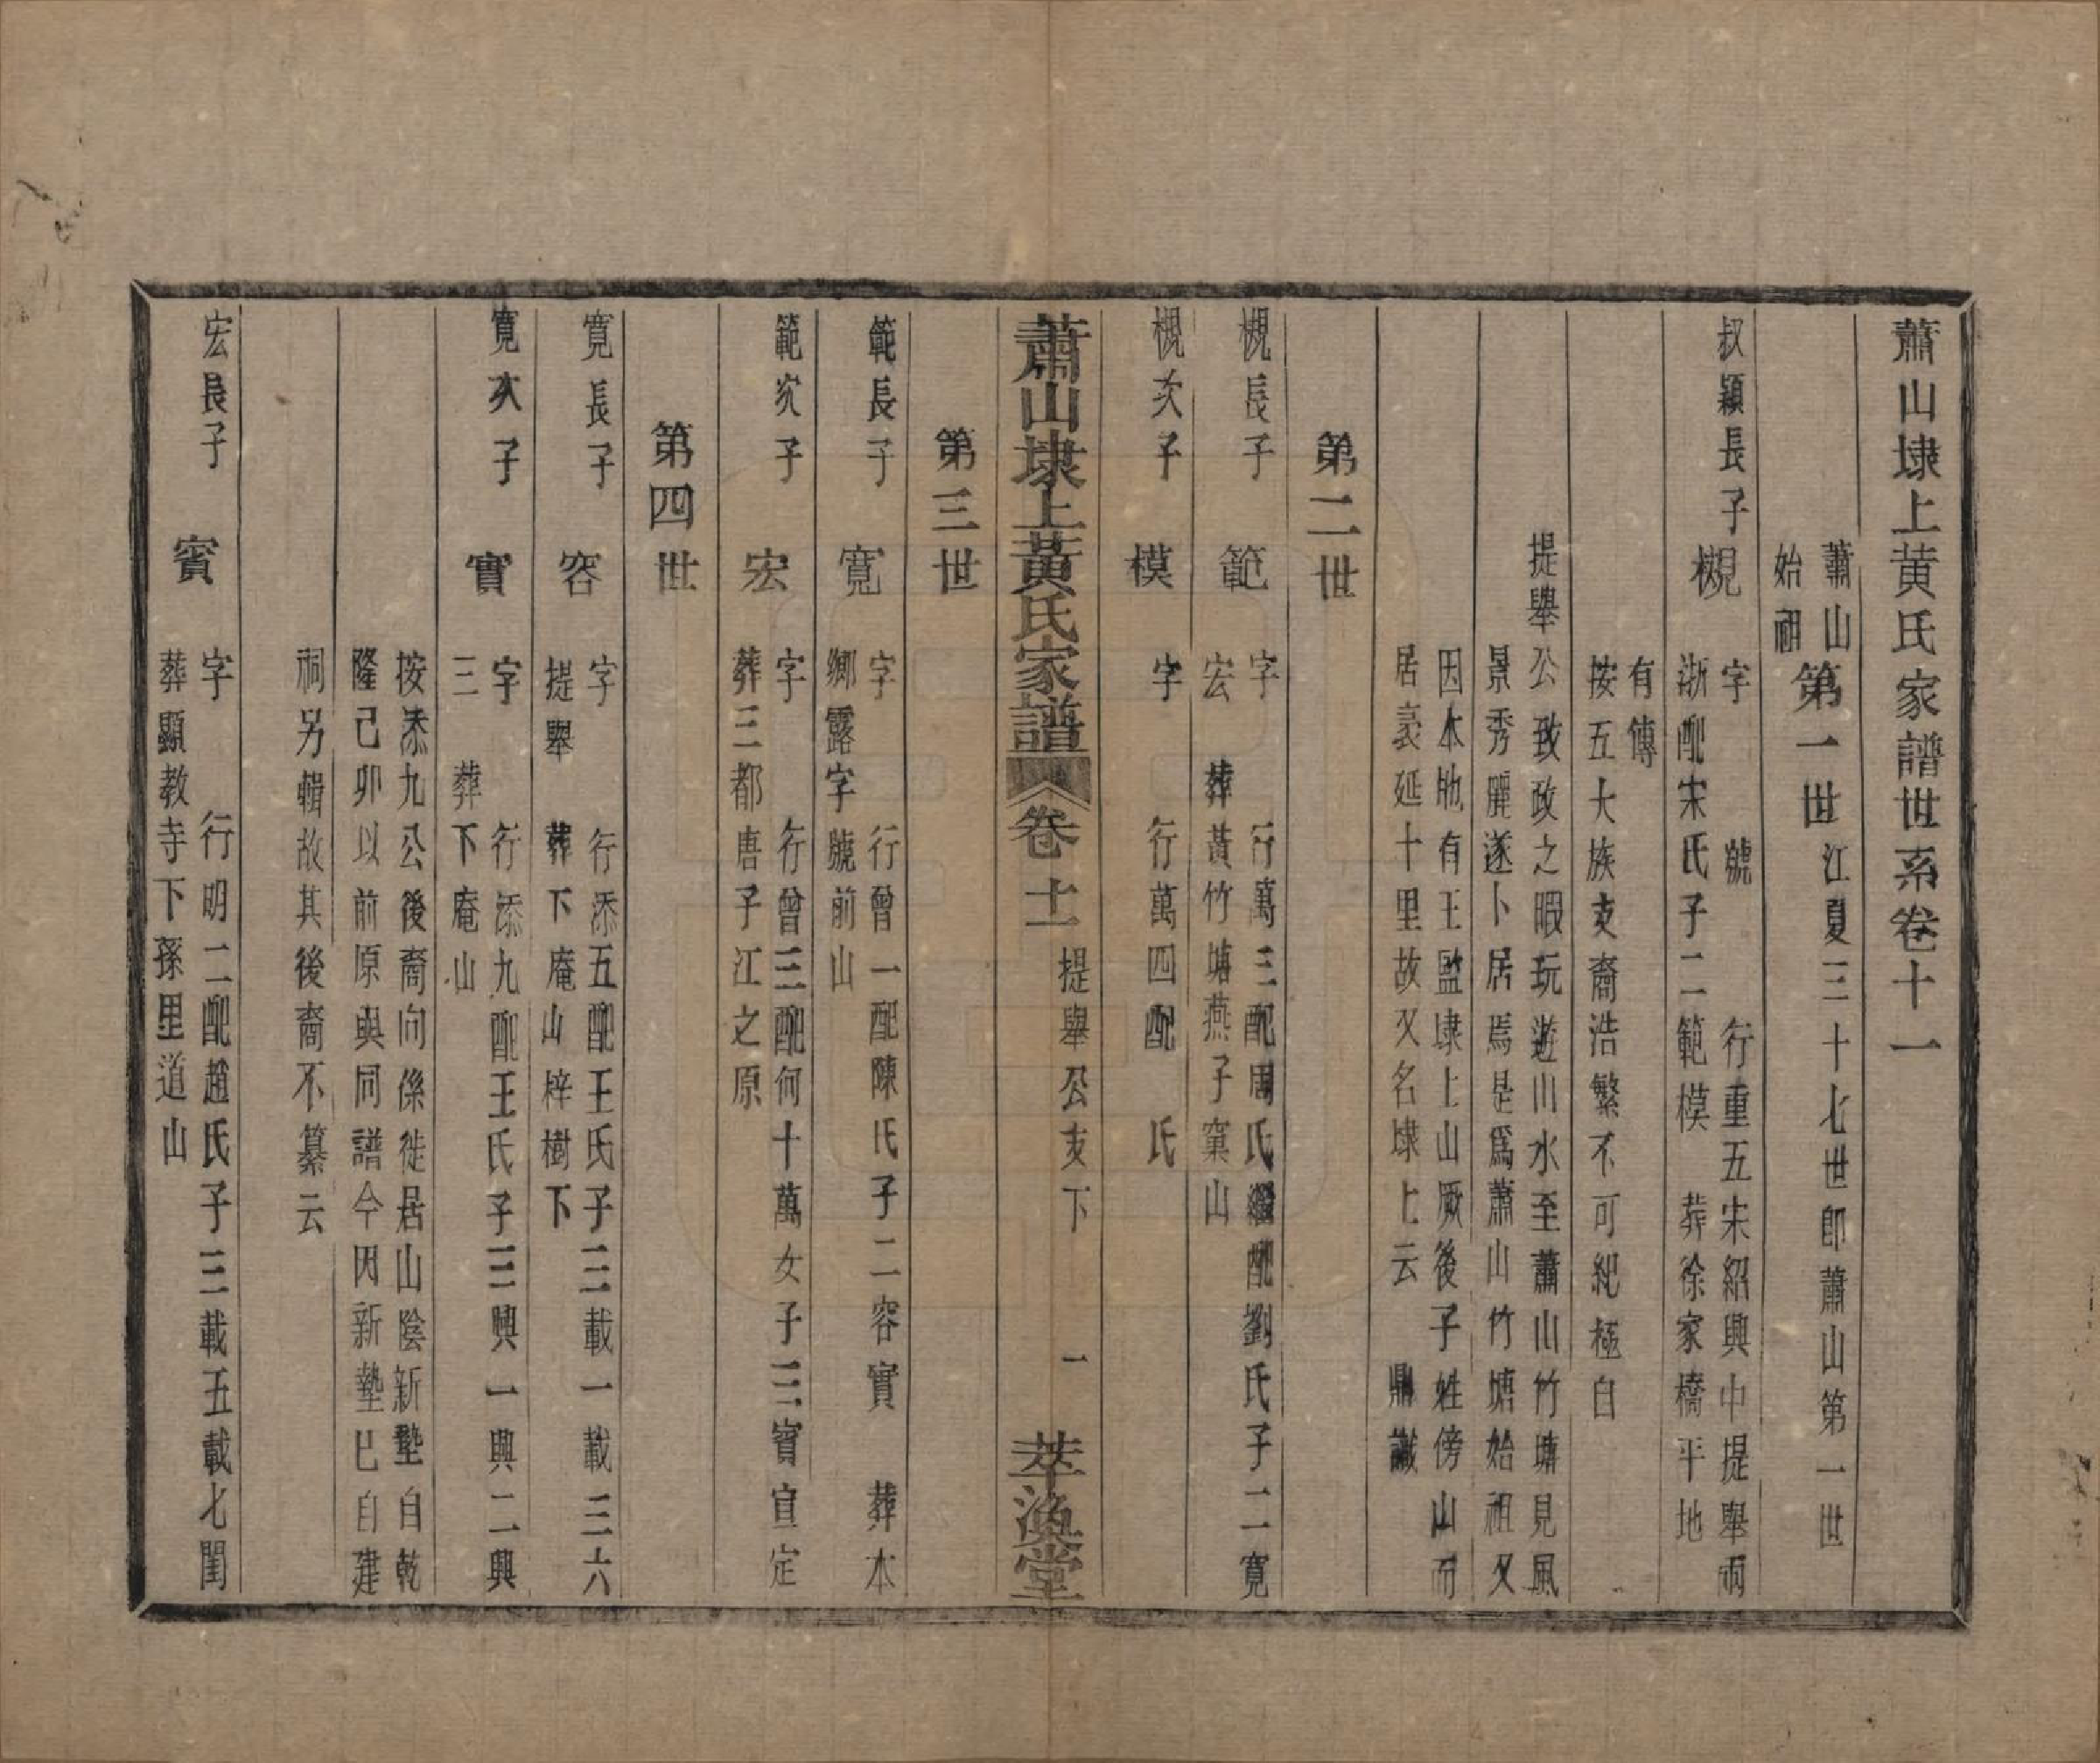 蕭山埭上黄氏家譜世系卷十一
蕭山
始祖
第一世
江夏三十七世即蕭山第一世
叔穎長子
槻
字 號 行重五宋紹興中提舉兩
浙配宋氏子二範模 葬徐家橋平地
有傳
按五大族支裔浩繁不可紀極白
提舉公致政之暇玩遊山水至蕭山竹塘見風
景秀麗遂卜居焉是爲蕭山竹塘始祖又
因本地有王監埭上山厥後子姓傍山而
居袤延十里故又名埭上云 鼎識
第二世
槻長子
範
字 行萬三配周氏繼配劉氏子二寬
宏 葬黃竹塘燕子窠山
槻次子
模
字 行萬四配 氏
蕭山埭上黃氏家譜
卷十一
提舉公支下
一
萃渙堂
第三世
範長子
寬
字 行曾一配陳氏子二容實 葬本
鄉露字號前山
範次子
宏
字 行曾三配何十萬女子三賓宣定
葬三都唐子江之原
第四世
寬長子
容
字 行添五配王氏子三載一載三六
提舉 葬下庵山梓樹下
寬次子
實
字 行添九配王氏子三興一興二興
三 葬下庵山
按添九公後裔向係徙居山陰新墊自乾
隆己卯以前原與同譜今因新墊已自建
祠另輯故其後裔不纂云
宏長子
賓
字 行明二配趙氏子三載五載七閏
葬顯教寺下孫里道山